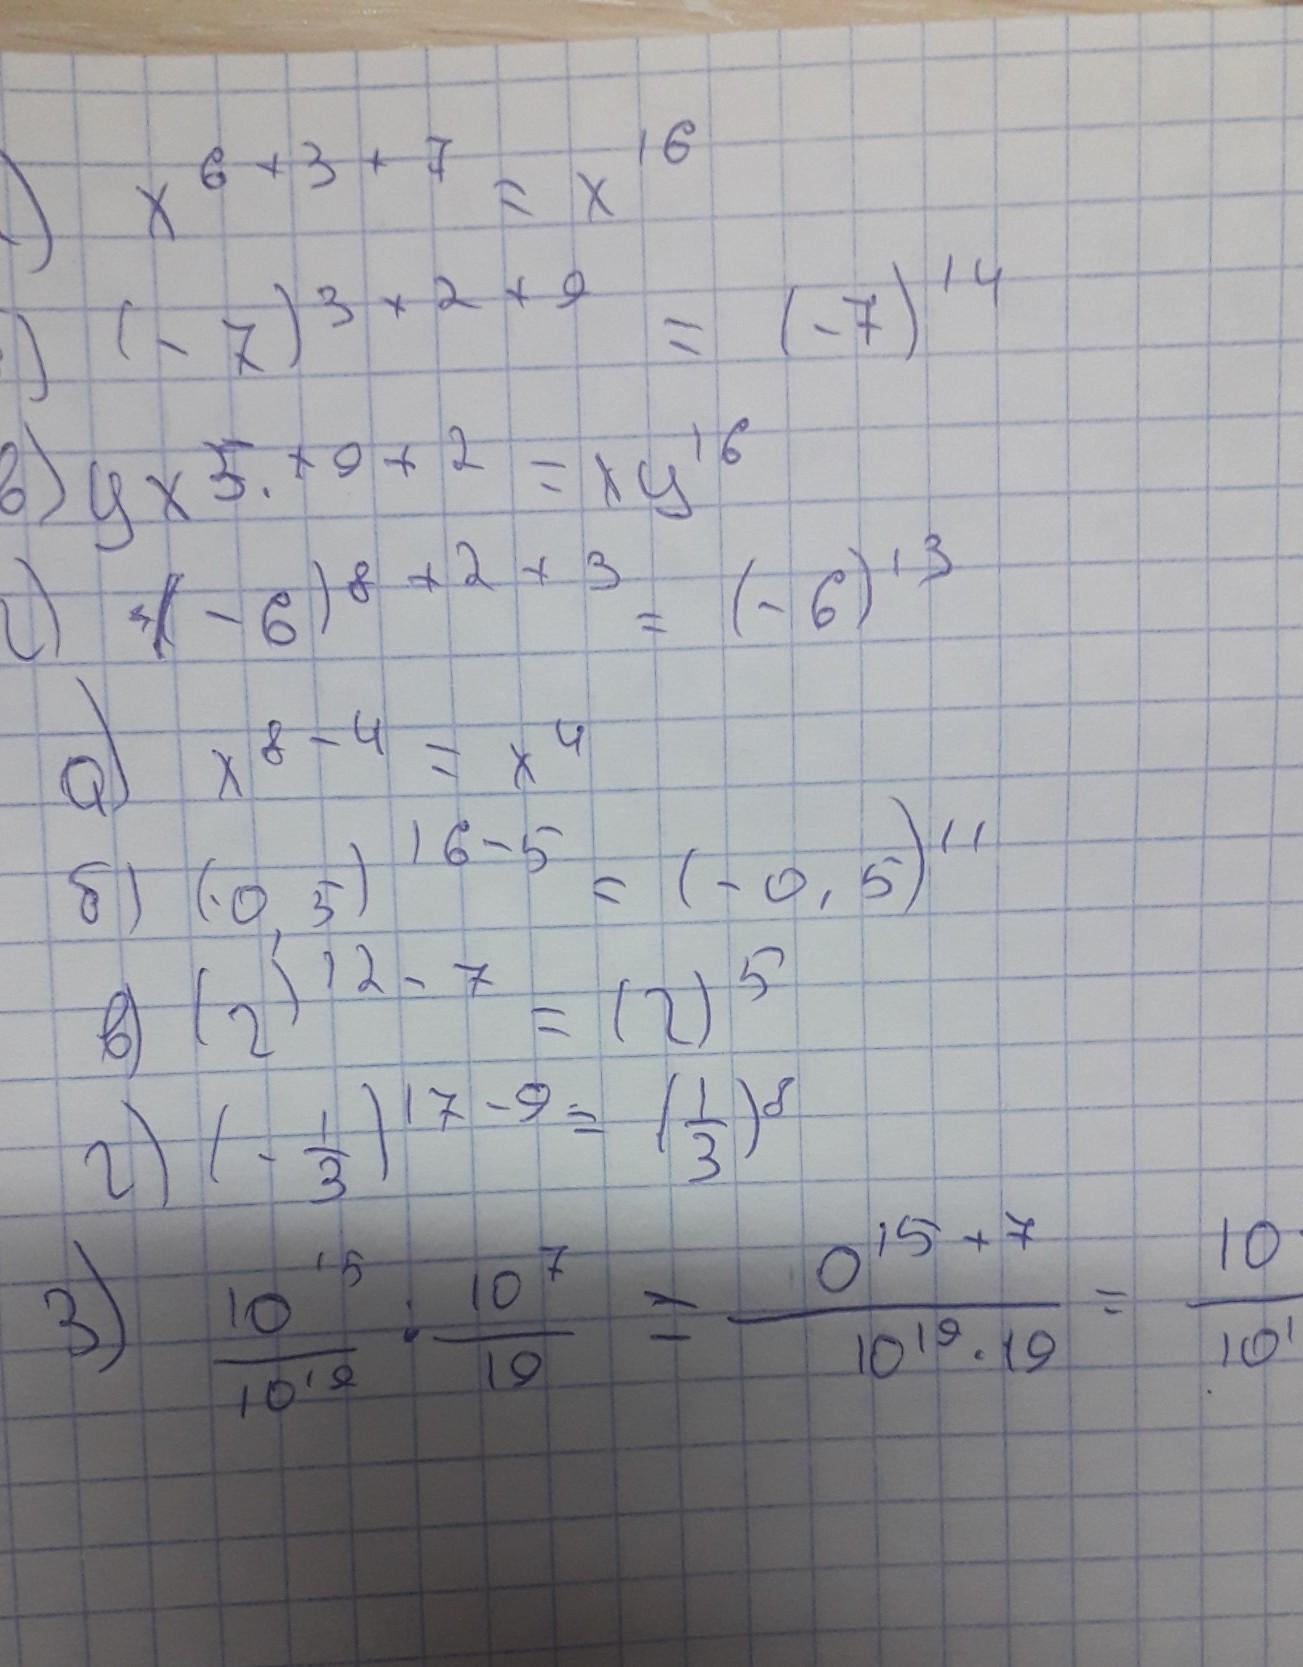 ) x^6 + 3 + 7 = x^16
) (- 7)^3 + 2 + 9 = (-7)^14
в) y x 5. + 9 + 2 = x y^16
г) (- 6)^8 + 2 + 3 = (- 6)^13
а) x^8 - 4 = x^4
б) (-0,5)^16 - 5 = (-0,5)^11
в) (2)^12 - 7 = (2)^5
г) (- 1/3)^17 - 9 = (1/3)^8
3) 10^15/10^19 · 10^7/19 = 0^15 + 7/10^19 · 19 = 10/10^1